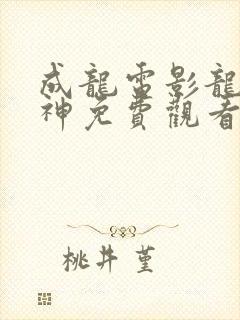 成龍雷影龍
神免費觀看
桃井 堇